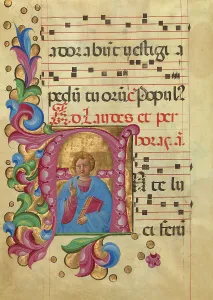 adorabūt uestigia
pedū tuorū. Popul9
Ad Laudes et per
horas. añ.
Ante lu
ciferū